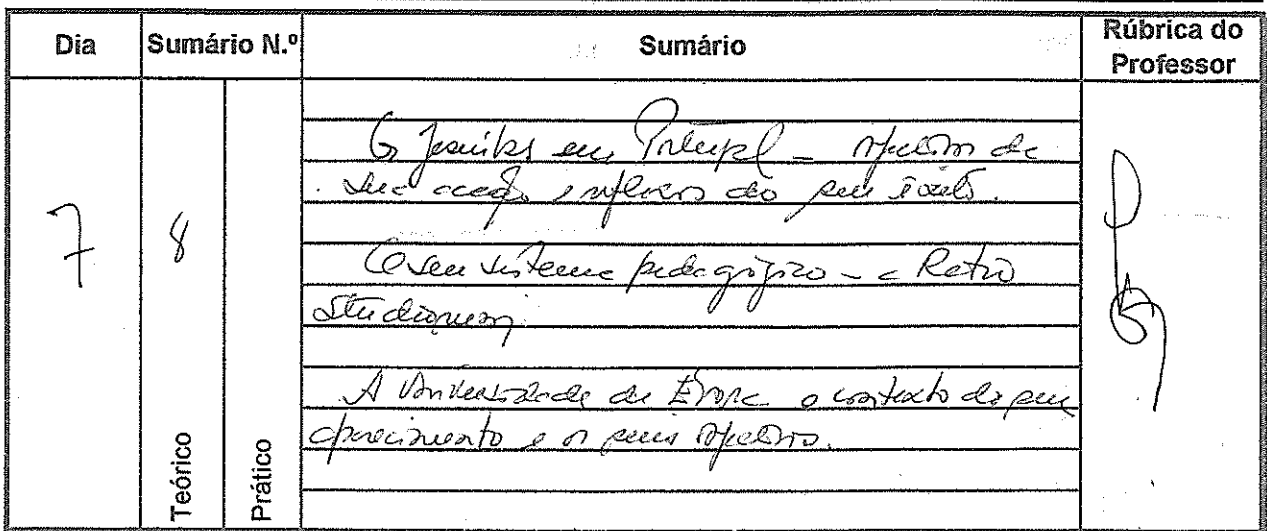 Dia Sumário N.º Sumário Rúbrica do Professor
7 8
Os Jesuítas em Portugal – objectivos da
sua acção e reflexos do seu êxito.
O seu sistema pedagógico – a Ratio
Studiorum.
A Universidade de Évora o contexto do seu
aparecimento e os seus objectivos.
Teórico
Prático